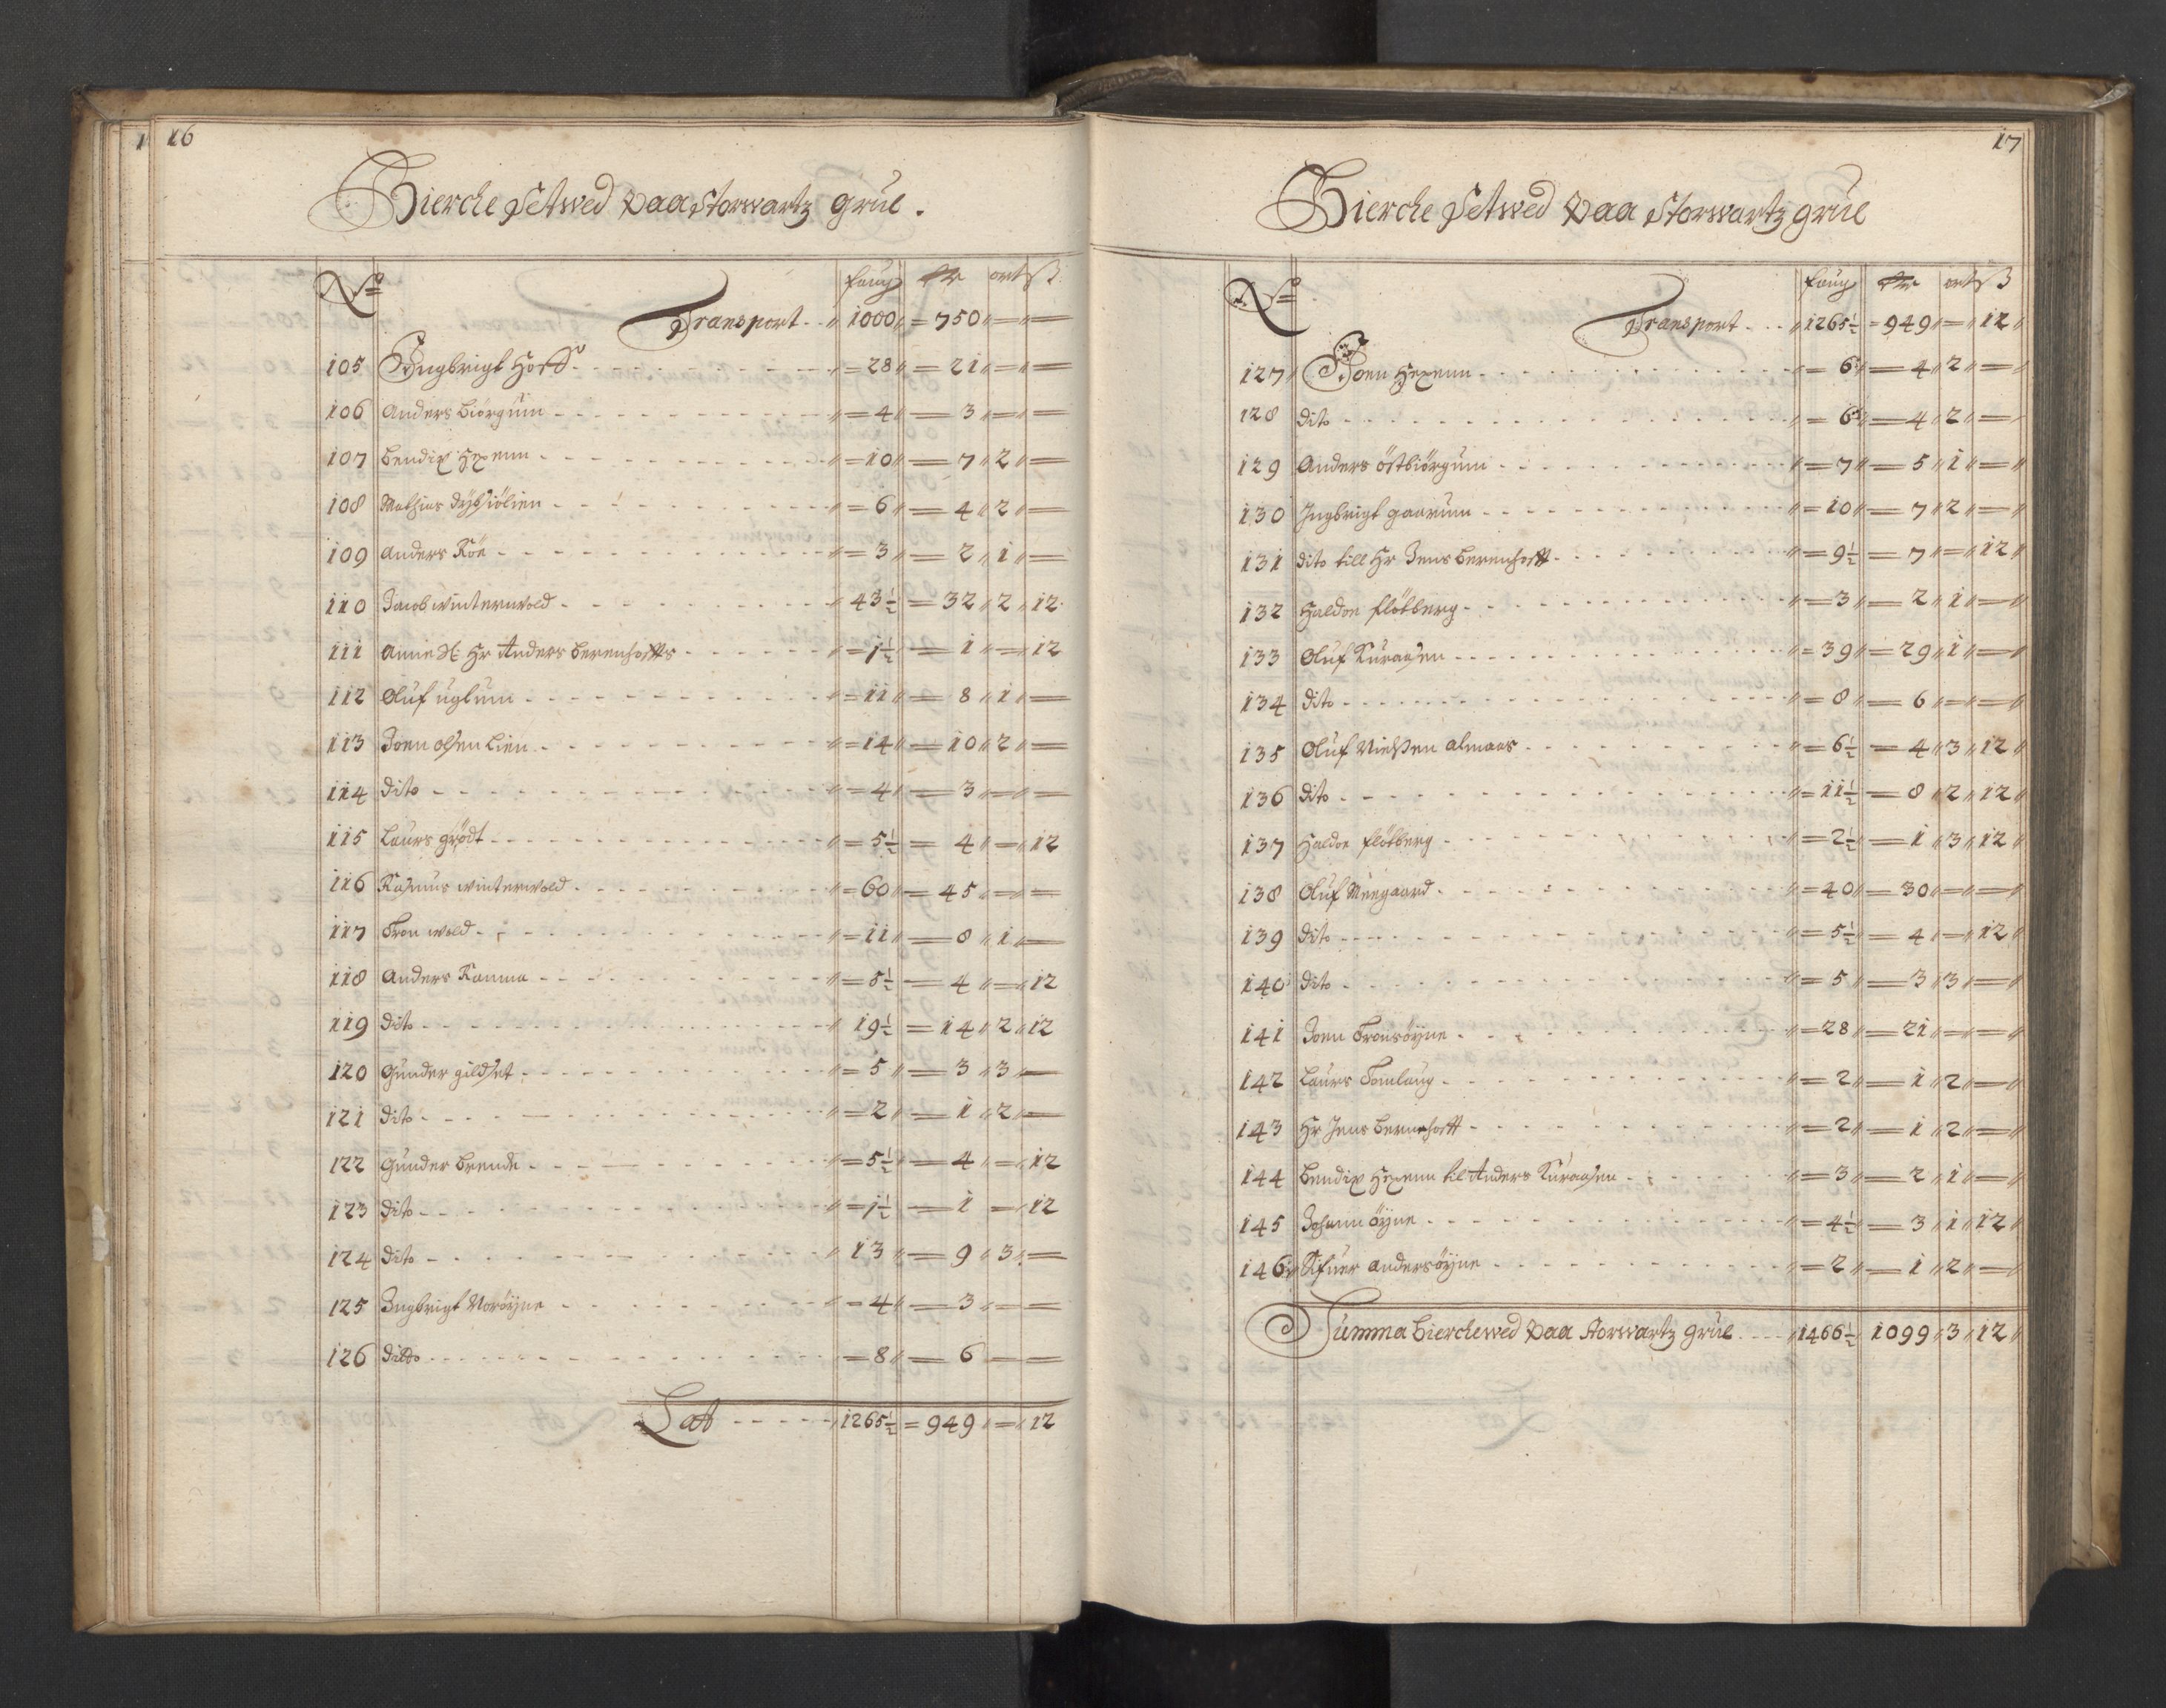 16
Bierche Setwed Paa Storwartz grul.
No faug Rdr ort ß
Transport 1000 750
105 Ingbrigt Hoff 28 21
106 Anders biörgum 4 3
107 bendix Hexemm 10 7 2
108 Mathias 6 4 2
109 Anders Röe 3 2 1
110 Jacob winterwold 43½ 32 2 12
111 Anne Sl: Hr Anders berenhoffts 1½ 1 12
112 Oluf uglum 11 8 1
113 Joen olsen lien 14 10 2
114 dito 4 3
115 Laurs grödt 5½ 4 12
116 Rasmus winterwold 60 45
117 Tron wold 11 8 1
118 Anders Ramma 5½ 4 12
119 dito 19½ 14 2 12
120 gunder gildset 5 3 3
121 dito 2 1 2
122 gunder brende 5½ 4 12
123 dito 1½ 1 12
124 dito 13 9 3
125 Ingbrigt Noröyne 4 3
126 ditto 8 6
Lat 1265½ 949 12
17
Bierche Setwed Paa Storwartz grul
No faug Rdr ort ß
Transport 1265½ 949 12
127 Joen Hexemm 6 4 2
128 dito 6 4 2
129 Anders östbiörgum 7 5 1
130 Ingbrigt gaarum 10 7 2
131 dito till Hr Jens berenhofft 9½ 7 12
132 Haldon flötberg 3 2 1
133 Oluf Kuraasen 39 29 1
134 dito 8 6
135 Oluf Nielsen almaas 6½ 4 3 12
136 dito 11½ 8 2 12
137 Haldon flötberg 2½ 1 3 12
138 Oluf Moegaard 40 30
139 dito 5½ 4 12
140 dito 5 3 3
141 Joen Tronsöyne 28 21
142 Laurs Tomlaug 2 1 2
143 Hr Jens bernhofft 2 1 2
144 bendix Hexemm til Anders Kuraasen 3 2 1
145 Johann öyne 4½ 3 1 12
146 Sifuer andersöyne 2 1 2
Summa bierchewed Paa Storwartz grul 1466½ 1099 3 12